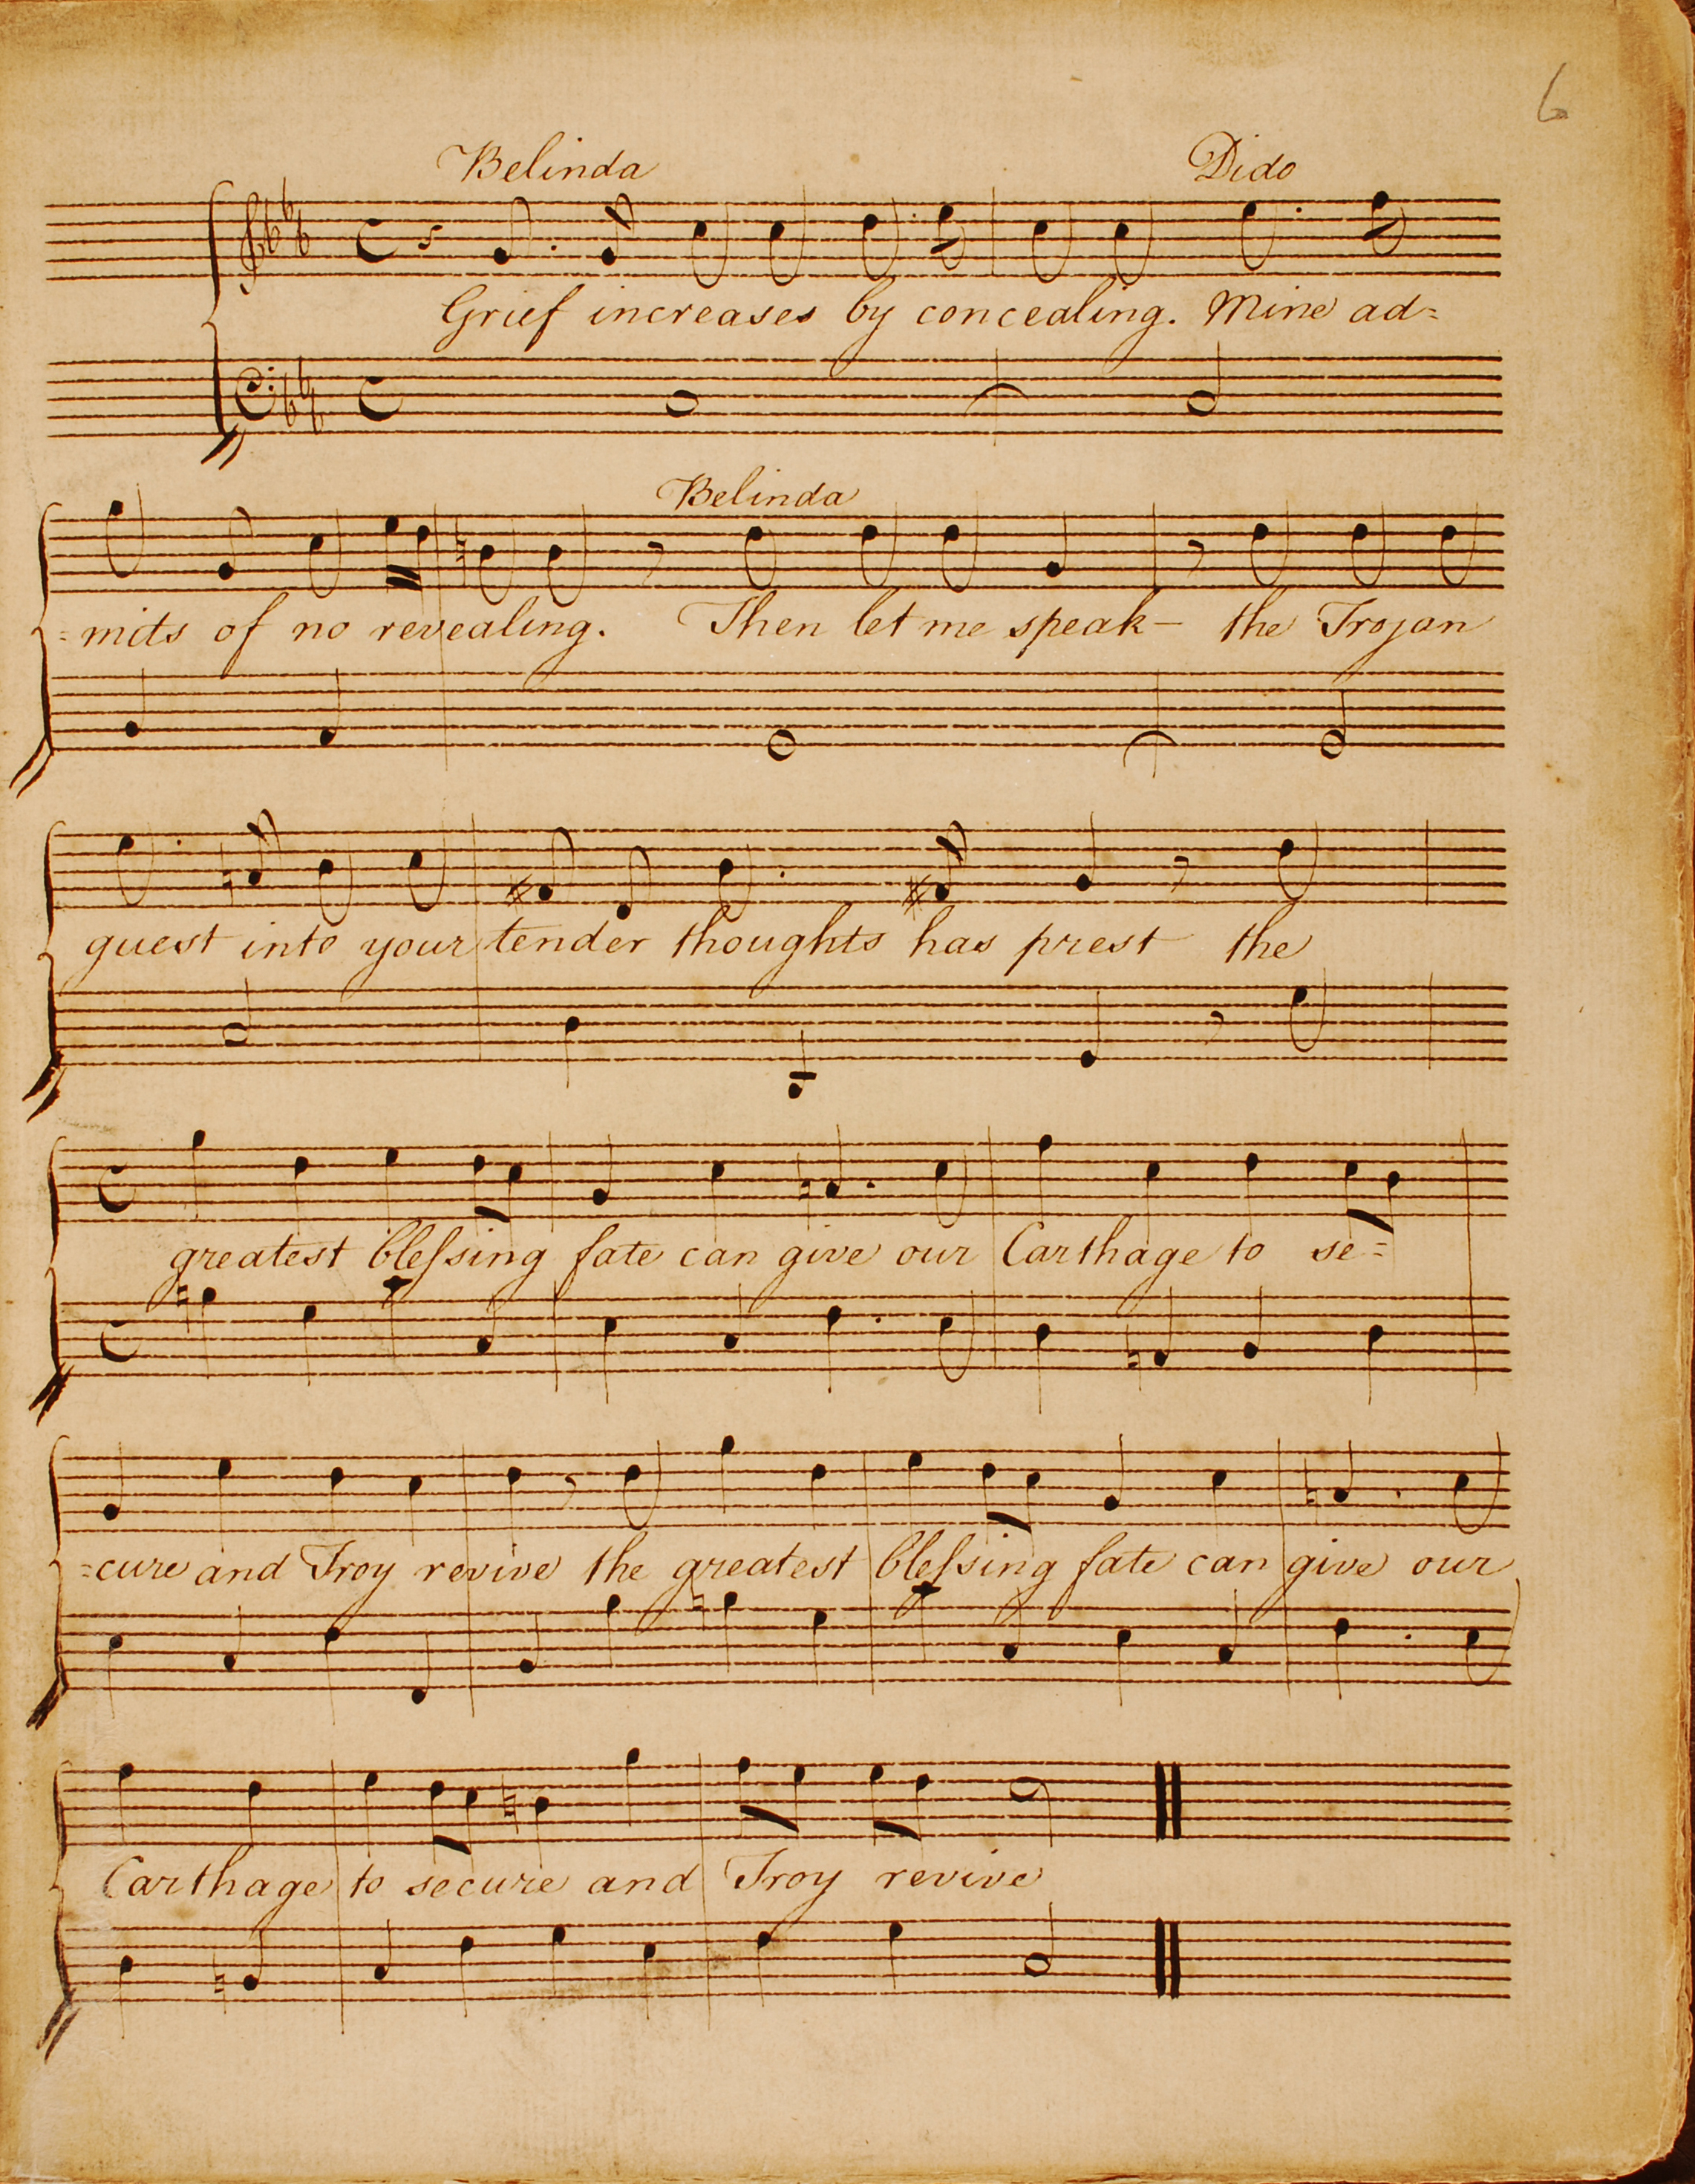 6
Belinda Dido
Grief increases by concealing. Mine ad=
Belinda
=mits of no revealing. Then let me speak – the Trojan
guest into your tender thoughts has prest the
greatest bleſsing fate can give our Carthage to se=
=cure and Troy revive the greatest bleſsing fate can give our
Carthage to secure and Troy revive